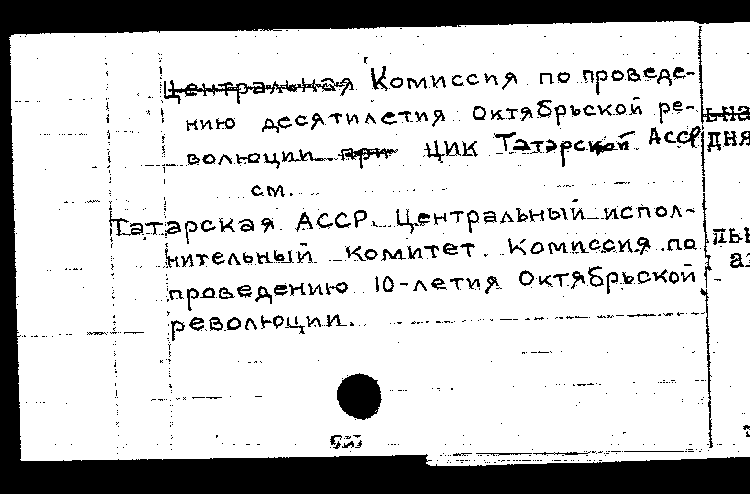 Центральная Комиссия по проведе-
нию десятилетия Октябрьской ре-
волюции при ЦИК Татарской АССР
см.
Татарская АССР. Центральный испол-
нительный комитет. Комиссия по
проведению 10-летия Октябрьской
революции.